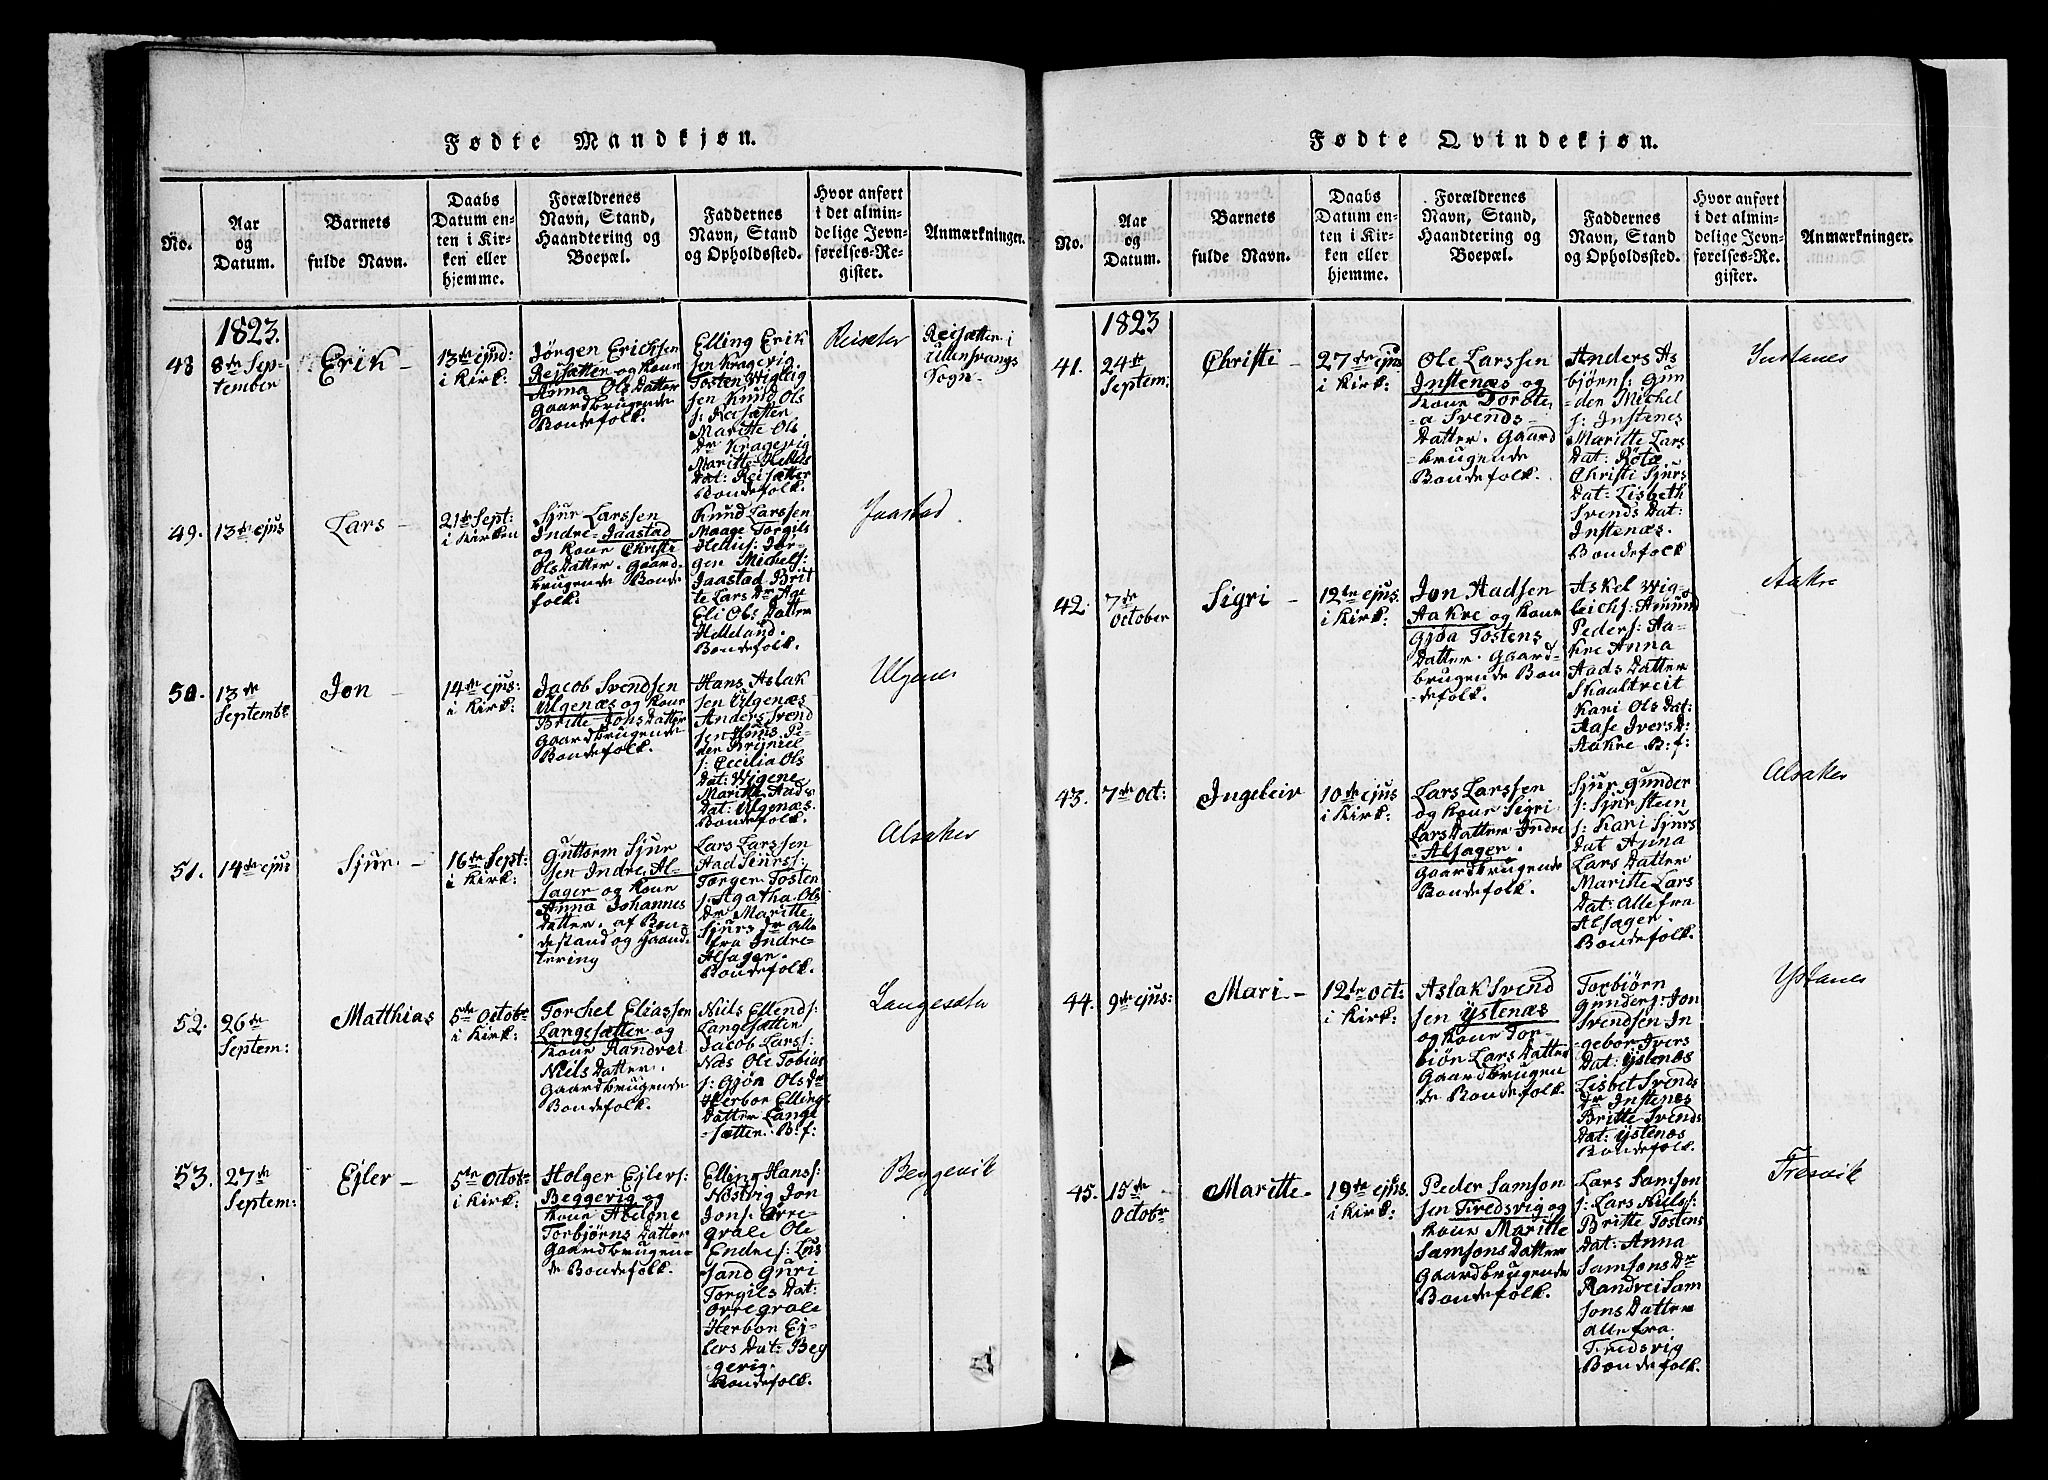 Fødte Mandkjøn.
No.
Aar
og
Datum.
Barnets
fulde Navn.
Daabs
Datum en-
ten i Kir-
ken eller
hjemme.
Forældrenes
Navn, Stand,
Haandtering og
Boepæl.
Faddernes
Navn, Stand
og Opholdssted.
Hvor anført
i det almin-
delige Jevn-
førelses-Re-
gister.
Anmærkninger.
1823.
48
8de Sep-
tember
Erik
13de ejusd:
i Kirk:
Jørgen Erichsen
Rejsætter og kone
Anna Ols Datter
Gaardbrugende
Bondefolk.
Elling Erik
sen Kragevig
Tosten Wiglig
sen Knud Ols
s: Rejsætter
Maritte Ols
Dr Kragevig
Maritte
Dat: Reisætter
Bondefolk.
Reisæter
Reisætter i
Ullensvangs
Sogn
49.
13de ejus
Lars
21de Sept:
i Kirken
Sjur Larssen
Indre Jaastad
og kone Christi
Ols Datter. Gaard-
brugende Bonde
folk.
Knud Larssen
Maage Torgils
Jør-
gen Michels:
Jaastad Brit
te Lars Dr Age
Eli Ols Datter
Helleland.
Bondefolk.
Jaastad.
50.
13de
Septembr
Jon
14de ejus:
i Kirk:
Jacob Svendsen
Ulgenæs og kone
Britte Jons Datter
Gaardbrugende
Bondefolk.
Hans Aslak
sen Ulgenæs
Anders Svend
sen Homs Pe-
der Brÿniel
s: Cecilia Ols
Dat: Wigene
Maritte Aads
Dat: Ulgenæs.
Bondefolk.
Ulgenes
51.
14de ejus
Sjur.
16de Sept:
i Kirk:
Guttorm Sjur
sen Indre Al-
sager og kone
Anna Johannes
Datter. af Bon-
destand og Haand-
tering
Lars Larssen
Aad Siurs:
Torger Tosten
s: Agatha Ols
Dr Maritte
Sjurs Dr alle
fra Indre-
Alsager.
Bondefolk.
Alsaker
52.
26de
Septem:
Matthias
5te Octobr
i Kirk:
Torchel Eliassen
Langesætter og
kone Randvei
Niels Datter.
Gaardbrugende
Bondefolk.
Niels Ellends:
Langesætter
Jacob Larss:
Næs Ole Tobias
s: Gjøn Ols Dr
Herbor Ellings
Datter Lange
-sætter. B: f:
Langesæter
53.
27de
Septem:
Ejler
5te Octobr
i Kirk:
Holger Ejlers:
Beggevig og
kone Abelone
Torbjørns Datter
Gaardbrugen-
de Bondefolk.
Elling Hans:
Nøstvig Jon
Jons: Orre-
grale Ole
Endres: Lus
sand Guri
Torgils Dat:
Orregrale
Herbor Ej-
lers Dat: Beg
-gevig.
Bondefolk.
Beggevik
Fødte Qvindekjøn.
No.
Aar
og
Datum.
Barnets
fulde Navn.
Daabs
Datum en-
ten i Kir-
ken eller
hjemme.
Forældrenes
Navn, Stand,
Haandtering og
Boepæl.
Faddernes
Navn, Stand
og Opholdssted.
Hvor anført
i det almin-
delige Jevn-
førelses-Re-
gister.
Anmærkninger.
1823
41.
24de
Septem:
Christi
27de ejus
i Kirk:
Ole Larssen
Instenæs og
kone Dorte
-a Svends-
Datter. Gaard
-brugende
Bondefolk.
Anders As
bjørns: Gun
-den Michel
s: Instenes
Maritte Lars
Dat: Røte
Christi Sjurs
Dat: Lisbeth
Svends Dat:
Instenæs.
Bondefolk
Instanes
42.
7de
October
Sigri
12te ejus.
i Kirk:
Jon Aadsen
Aakre og kone
Gjöa Tostens
Datter. Gaard-
brugende Bon
-defolk.
Askel Wig-
leichs: Amund
Peders: Aa-
kre Anna
Aads Datter
Skaaltveit
Kari Ols Dat:
Aase Ivers D:
Aakre B: f:
Aakre
43.
7de Oct:
Ingeleiv
10de ejus
i Kirk:
Lars Larssen
og kone Sigri
Lars Datter Indre
Alsager.
Gaardbrugende
Bondefolk.
Sjur Gunder
s: Sjur Steen
s: Kari Sjurs
Dat Anna
Lars Datter
Maritte Lars
Dat: Alle fra
Alsager.
Bondefolk.
Alsaker
44.
9de ejus:
Mari
12te Oct:
i Kirk:
Aslak Svend
sen Ystenæs
og kone Tor-
biön Lars Datter
Gaardbrugen
de Bondefolk.
Torbiørn
Gunders: Jon
Svendsen In
-gebor Ivers
Dat: Ystenæs
Lisbet Svends
Dr Instenæs
Britte Svends
Dat: Ystenæs
Bondefolk.
Ystanes
45.
15de
Octobr
Maritte
19de ejus.
i Kirk:
Peder Samson
sen Tredsvig og
kone Maritte
Samsons Datter
Gaardbrugende
Bondefolk.
Lars Samson
s: Lars Niels:
Britte Tostens
Dat: Anna
Samsons Dr
Randvei Sam
sons Datter
alle fra
Tredsvig
Bondefolk.
Tresvik